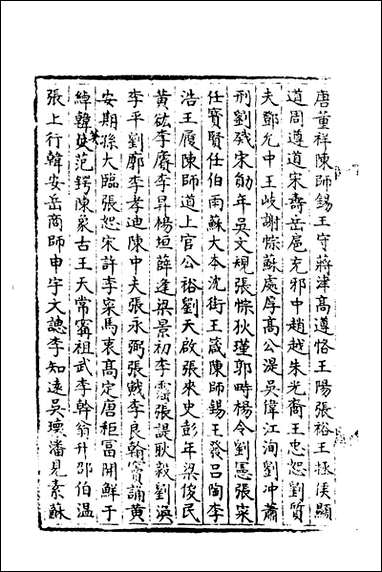 唐董祥陳師錫王守蔣津高遵恪王陽張裕王拯侯顯
道周遵道宋壽岳扈充邪中趙越朱光裔王忠恕劉質
夫鄭允中王岐謝悰蘇處厚高公湜吳偉江洵劉沖蕭
刑劉殘宋勛年吳文規張悰狄瑾郭時楊令劉憲張寀
任賓賢任伯雨蘇大本沈街王箴陳師錫王發呂陶李
浩王履陳師道上官公裕劉天啟張來史彭年梁俊民
黃竑李膺李昇楊垣薛逢梁景初李霤張諟耿毅劉渙
李平劉廓李孝廸陳中夫張永弼張戩李良翰竇誦黃
安期孫大臨張恕宋許李寀馬衷髙定唐秬富開鮮于
綽韓筴范鍔陳彖古王天常甯祖武李幹翁升邵伯溫
張上行韓安岳商師申宇文諗李知遠吳瓌潘見素蘇